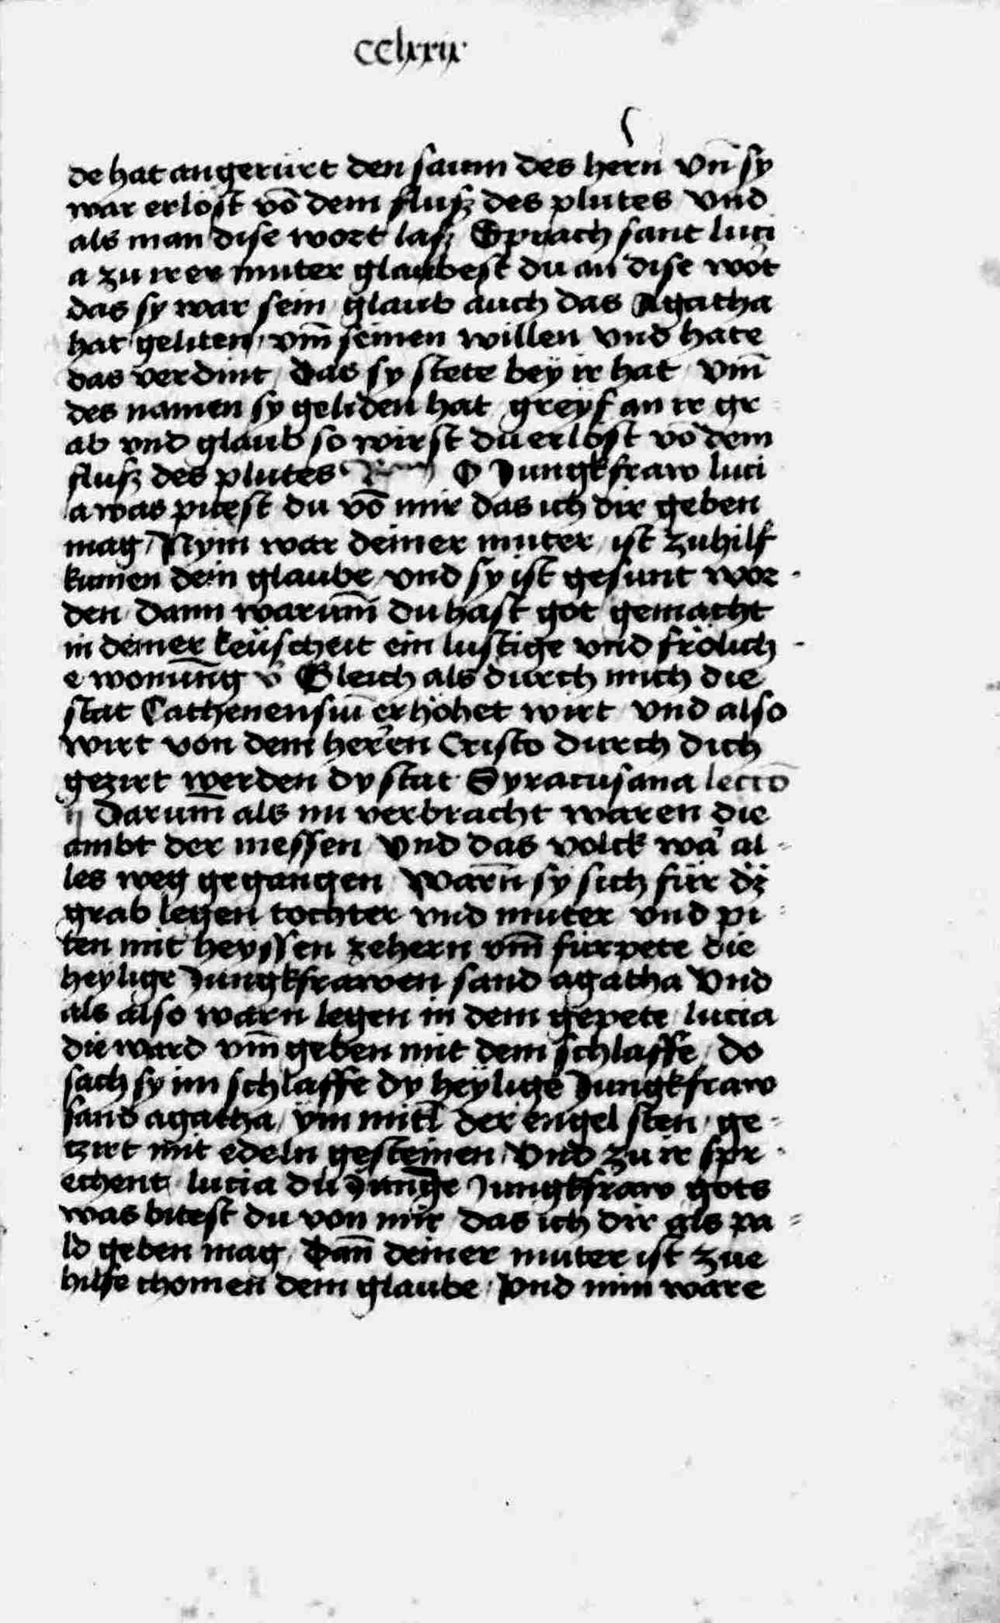 cclxxix
de hat angerürt den saum des hern vn̄ sy
war erlöst vō dem flusz des plutes vnd
als man dise wort lasz Sprach sant luci
a zu irer muter glaubest du an dise wōt
das sy war sein glaub auch das Agatha
hat geliten vm̄ seinen willen vnd hate
das verdint das sy stete bey ir hat vm̄
des namen sy geliden hat greyf an ir gr
ab vnd glaub so wirst du erlöst vō dem
flusz des plutes O Jungkfraw luci
a was pitest du vō mir das ich dir geben
mag Nym war deiner muter ist zuhilf
kumen dein glaube vnd sy ist gesunt wor
den dann warum̄ du hast got gemacht
in deiner keüscheit ein lustige vnd frölich
e wonūng v̄ Gleich als durch mich die
stat Cathenensiū erhöhet wirt vnd also
wirt von dem herren Cristo durch dich
gezirt werden dy stat Syracusana lectō
ij Darum̄ als nu verbracht waren die
ambt der messen vnd das volck wa᷑ al-
les weg gegangen Warn̄ sy sich für dz
grab legen tochter vnd muter vnd pi-
ten mit heyssen zehern vm̄ fürpete die
heylige Jungkfrawen sand agatha Vnd
als also warn legen in dem gepete lucia
die ward vm̄geben mit dem schlaffe do
sach sy im schlaffe dy heylige Jungkfraw
sand agatha ym mitl̄ der engel sten ge-
tzirt mit edeln gesteinen Vnd zu ir spr-
echent lucia du Junge Jungkfraw gots
was bitest du von mir das ich dir als pa-
ld geben mag Dan̄ deiner muter ist zue
hilfe chomen dein glaube Vnd nim ware